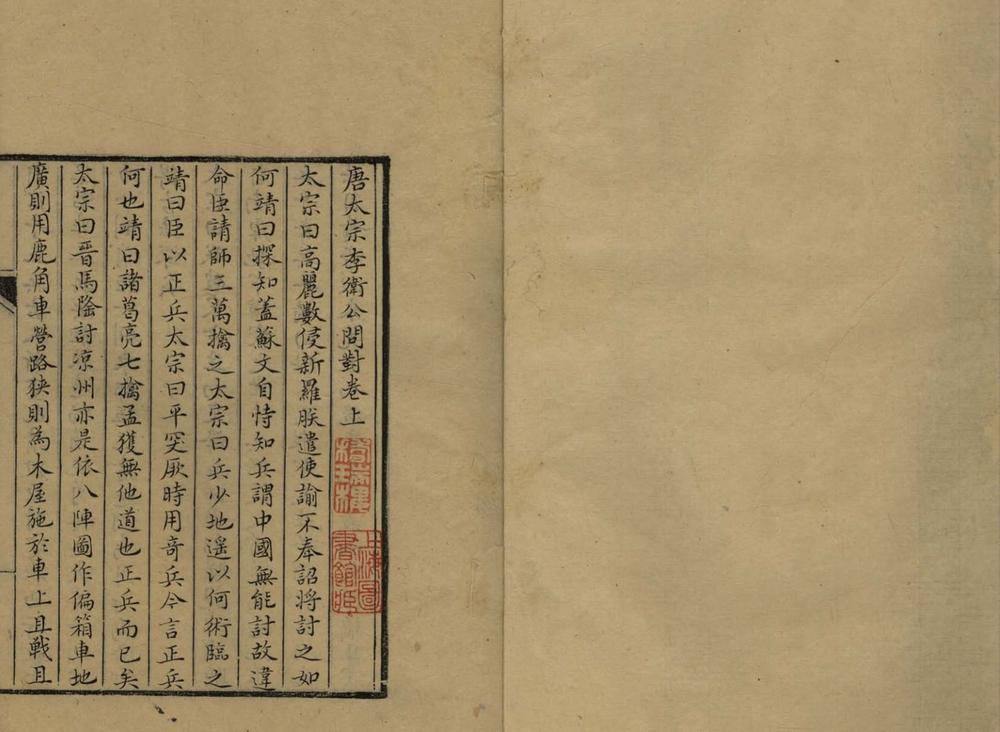 唐太宗李衛公問對卷上
太宗曰高麗數侵新羅朕遣使諭不奉詔將討之如
何靖曰探知蓋蘇文自恃知兵謂中國無能討故違
命臣請師三萬擒之太宗曰兵少地遥以何術臨之
靖曰臣以正兵太宗曰平突厥時用奇兵今言正兵
何也靖曰諸葛亮七擒孟獲無他道也正兵而已矣
太宗曰晋馬隆討凉州亦是依八陣圖作偏箱車地
廣則用鹿角車營路狹則為木屋施於車上且戰且
上海圖
書館藏